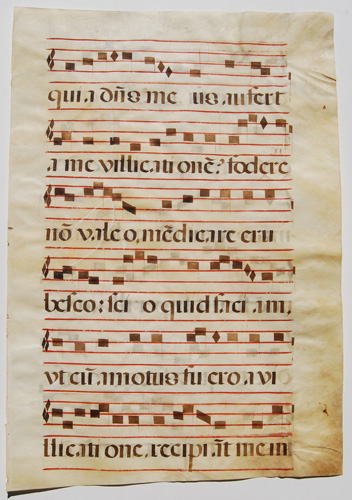 quia dñs me us aufert
a me villicationē? fodere
nō valeo, mēdicare eru
besco: scio quid faciam,
vt cū amotus fuero a vi
llicatione, recipiāt me in